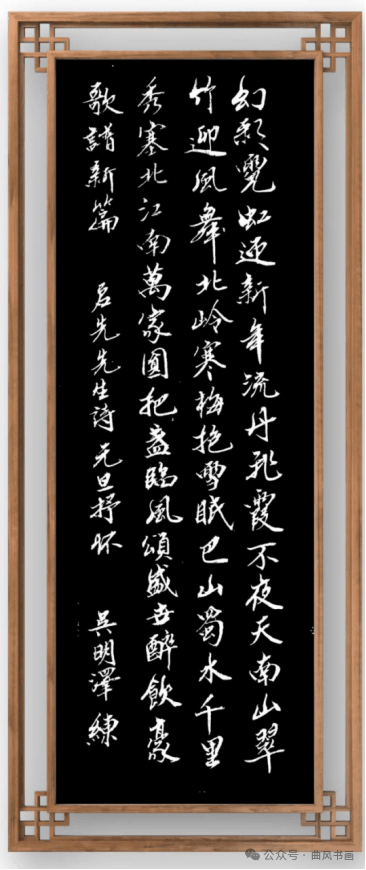 幻彩霓虹迎新年流丹飛霞不夜天南山翠
竹迎風舞北岭寒梅抱雪眠巴山蜀水千里
秀塞北江南萬家圓把盞臨風頌盛世醉飲豪
歌譜新篇 君先先生詩元旦抒怀 吴明澤練
公众号·曲风书画